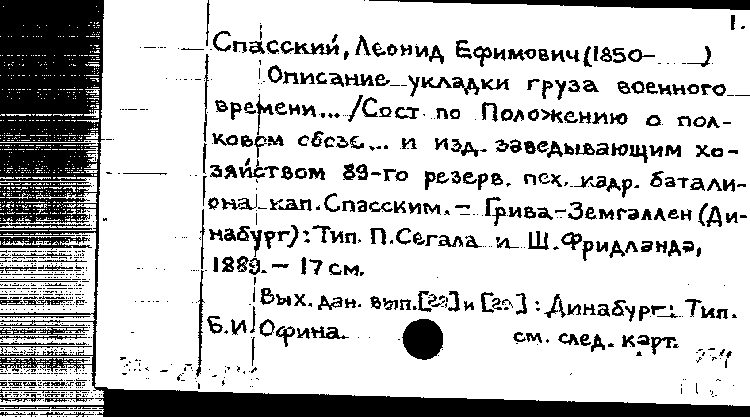 1.
Спасский, Леонид Ефимович (1850- )
Описание укладки груза военного
времени... /Сост. по Положению о пол-
ковом обозе... и изд. заведывающим хо-
зяйством 89-го резерв. пех. кадр. батали-
она кап. Спасским. – Грива-Земгаллен (Ди-
набург): Тип. П. Сегала и Ш. Фридланда,
1889. – 17 см.
Вых. дан. вып. и : Динабург: Тип.
Б.И. Офина.
см. след. карт.